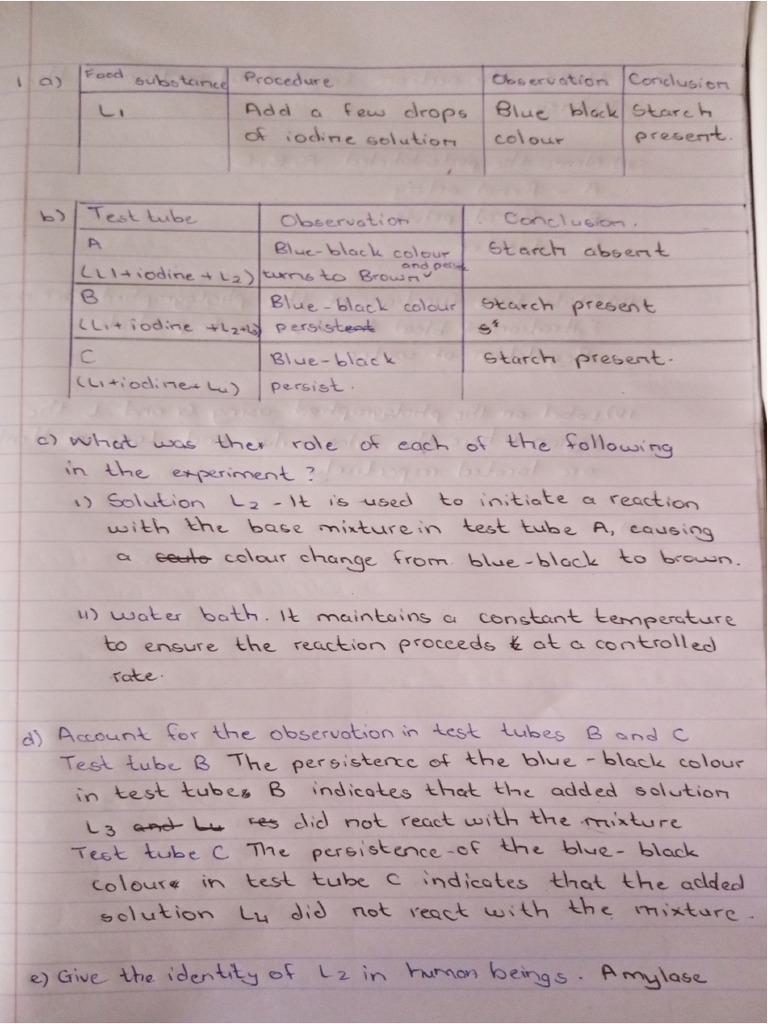 1 a) Food substance Procedure Observation Conclusion
L1 Add a few drops Blue black Starch
of iodine solution colour present.
b) Test tube Observation Conclusion.
A Blue-black colour Starch absent
and
(L1+iodine+L2) turns to Brown
B Blue-black colour Starch present
(L1+iodine +L2+L3) persistent
C Blue-black Starch present.
(L1+iodine+L4) persist.
c) What was ther role of each of the following
in the experiment?
i) Solution L2 - It is used to initiate a reaction
with the base mixture in test tube A, causing
a colour change from blue-black to brown.
ii) water bath. It maintains a constant temperature
to ensure the reaction proceeds at a controlled
rate.
d) Account for the observation in test tubes B and C
Test tube B The persistence of the blue-black colour
in test tubes B indicates that the added solution
L3 and L4 res did not react with the mixture
Test tube C The persistence of the blue-black
colour in test tube C indicates that the added
solution L4 did not react with the mixture.
e) Give the identity of L2 in human beings. Amylase